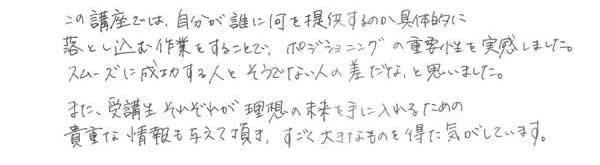 この講座では、自分が誰に何を提供するのか具体的に
落とし込む作業をすることで、ポジショニングの重要性を実感しました。
スムーズに成功する人とそうでない人の差だな、と思いました。
また、受講生それぞれが理想の未来を手に入れるための
貴重な情報も与えて頂き、すごく大きなものを得た気がしています。